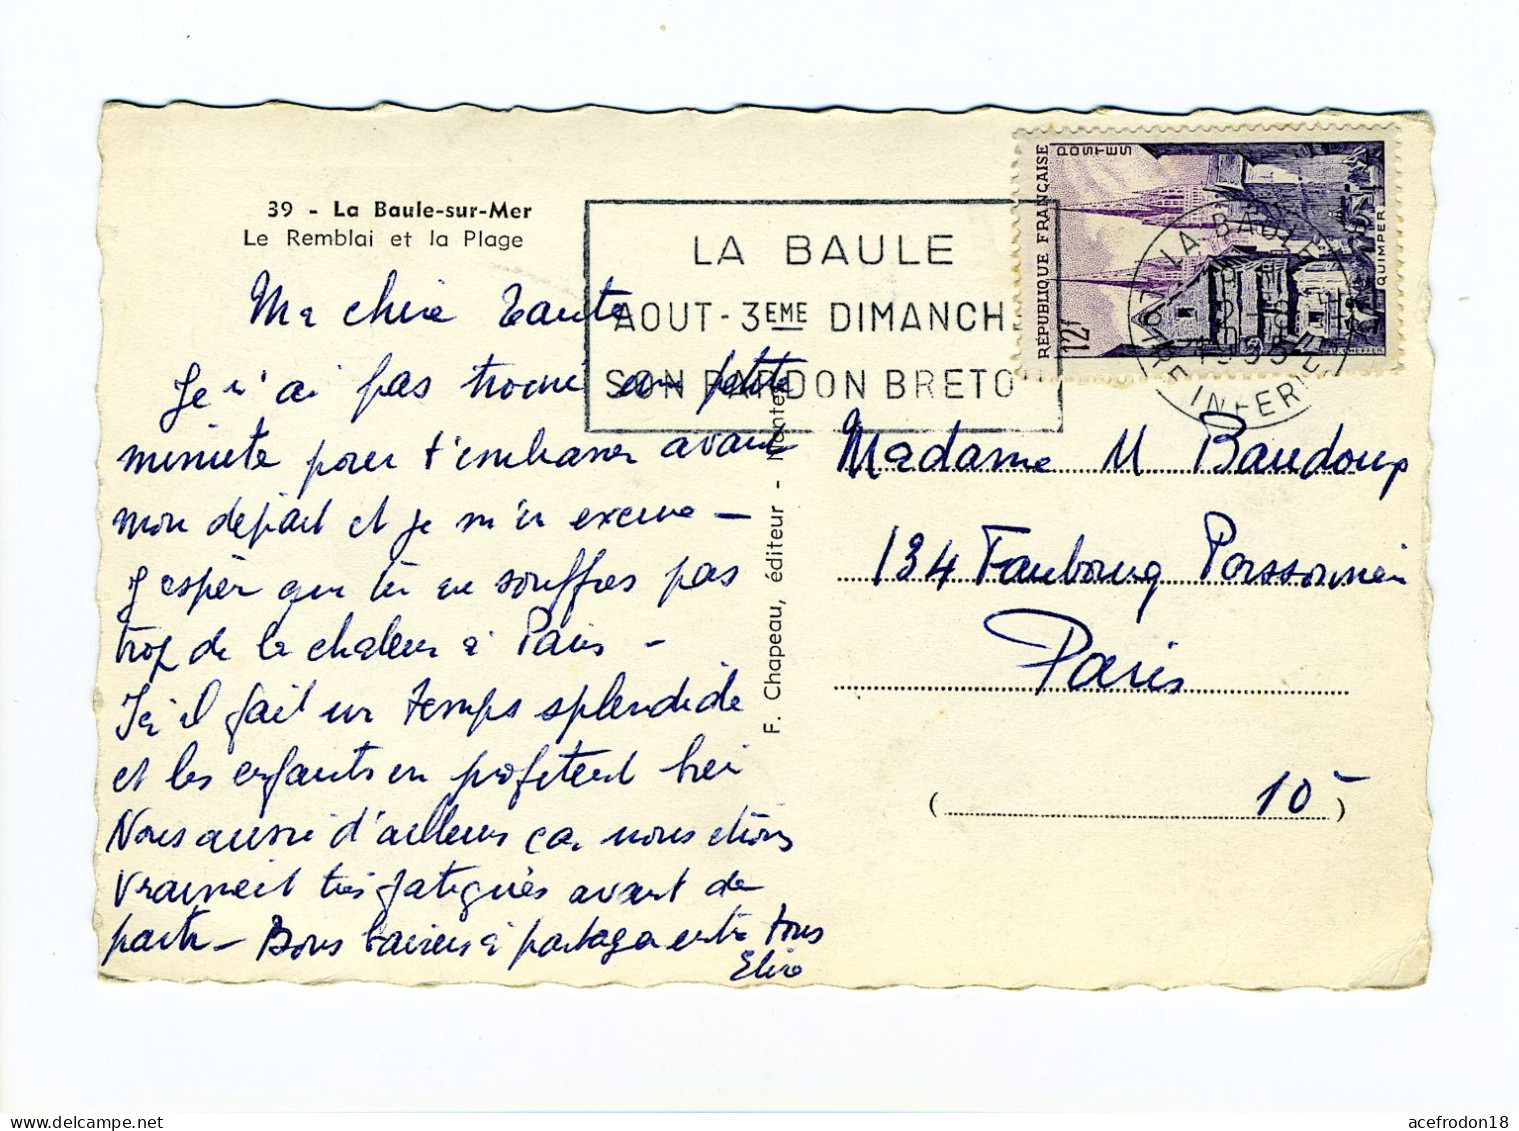 39 - La Baule-sur-Mer
Le Remblai et la Plage
Ma chère Tante
Je n'ai pas trouvé une petite
minute pour t'embrasser avant
mon départ et je m'en excuse —
J'espère que tu ne souffres pas
trop de la chaleur à Paris —
Ici il fait un temps splendide
et les enfants en profitent bien
Nous aussi d'ailleurs car nous étions
vraiment très fatigués avant de
partir — Bons baisers à partager entre tous
Elise
F. Chapeau, éditeur - Nantes
LA BAULE
AOUT - 3EME DIMANCH
SON PARDON BRETO
RÉPUBLIQUE FRANÇAISE
POSTES
12f
QUIMPER
LA BAULE
INFERIEURE
Madame M Baudoup
134 Faubourg Poissonnière
Paris
( 10 )
acefrodon18